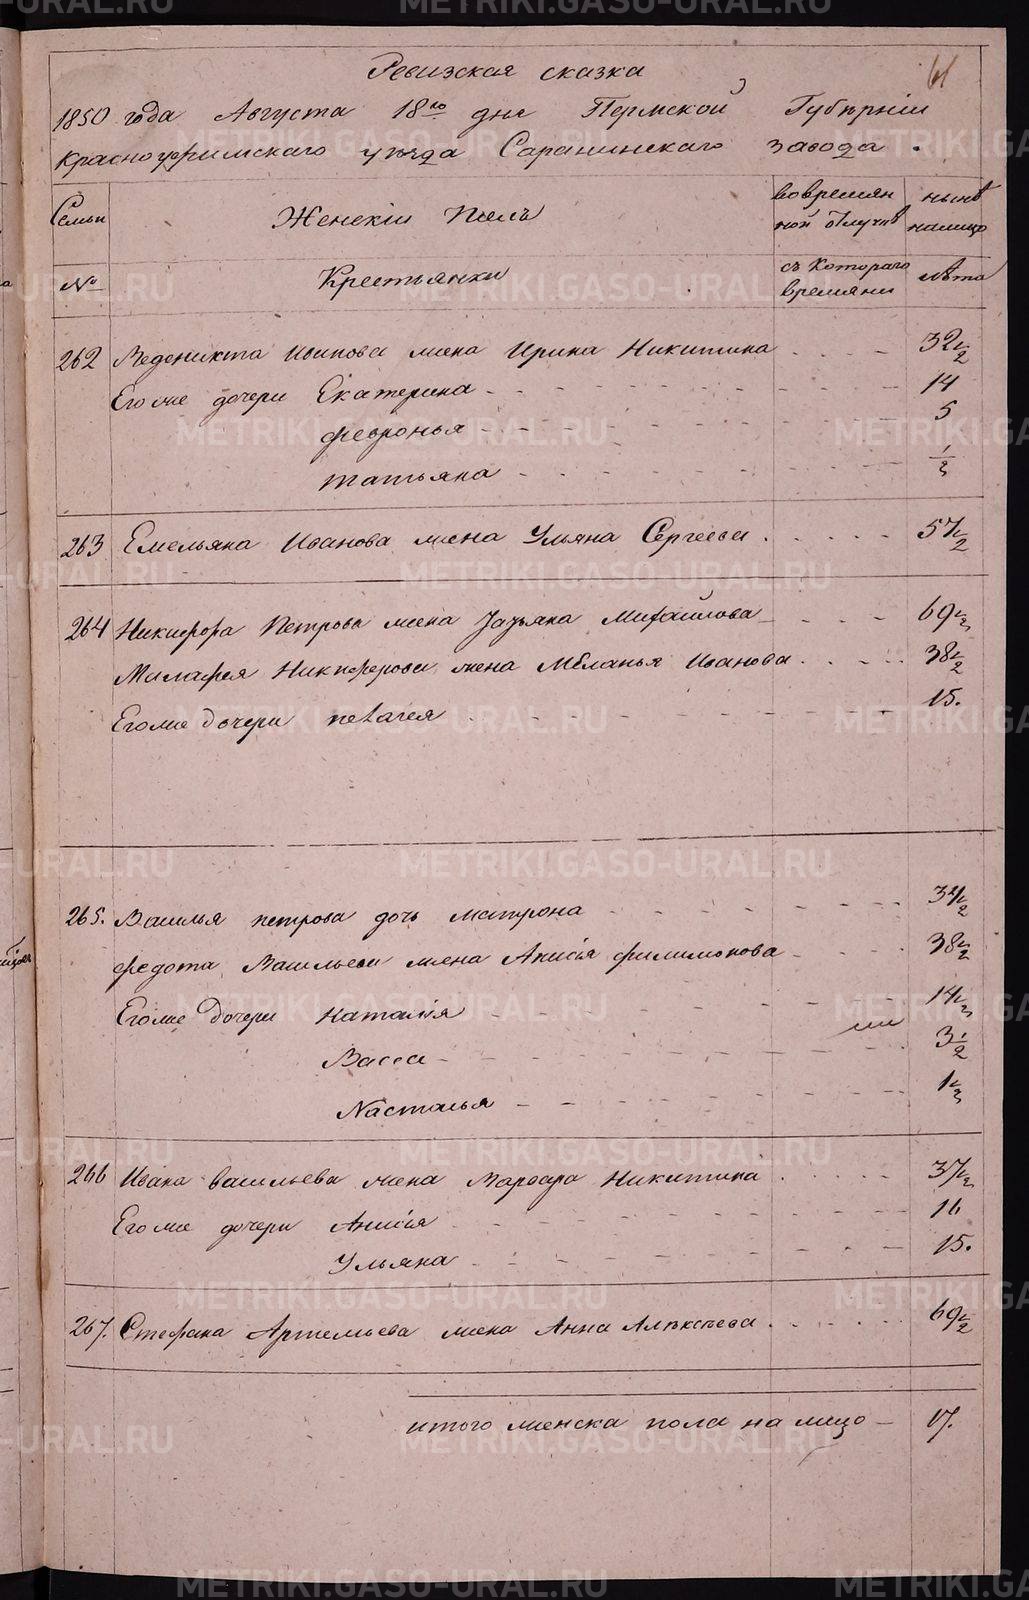 61
Ревизская сказка
1850 года Августа 18го дня Пермской Губѣрніи
красноуфимскаго уѣзда Саранинскаго завода.
Семьи Женскій Полъ вовремян ной отлучкѣ нынѣ налицо
№ Крестьянки съ Котораго времяни лѣта
262 Веденикта жена Ирина Никитина 32 1/2
Его же дочери Екатерина 14
февронья 5
татьяна
263 Емельяна Иванова жена Ульяна Сергеева 57 1/2
264 Никифора Петрова жена Михайлова 69 1/2
Никиферова жена Меланья Иванова 38 1/2
Его же дочери пелагея 15.
265. Василья петрова дочь матрона 1/2
федота Васильева жена Анисiя филимонова 38 1/2
Его же дочери Наталiя 14 1/2
Васса 3 1/2
Nасталья 1 1/2
266 Ивана васильева жена Варвара Никитина 37 1/2
Его же дочери Анисiя 16
Ульяна 15.
267. Стефана Артемьева жена Анна Алѣксѣева 69 1/2
итого женска пола на лицо 17.
METRIKI.GASO-URAL.RU